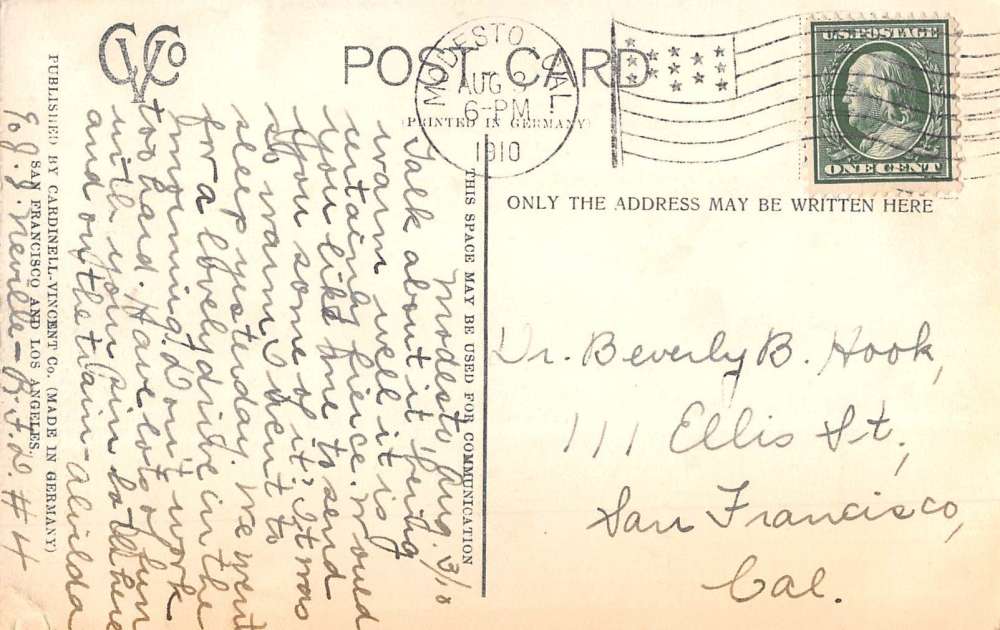 CVCo
POST CARD
(PRINTED IN GERMANY)
MODESTO, CAL.
AUG 9
6-PM
1910
U.S. POSTAGE
ONE CENT
THIS SPACE MAY BE USED FOR COMMUNICATION
ONLY THE ADDRESS MAY BE WRITTEN HERE
Modesto Aug.
Talk about it being
warm well it is
certainly fierce. Would
you like me to send
you some of it? It was
so warm I went to
sleep yesterday. We went
for a lovely drive in the
morning. Don't work
too hard. Have lots of fun
with your
and out the train - Alvilda
Neville - R.F.D. #4
Dr. Beverly B. Hook,
111 Ellis St,
San Francisco,
Cal.
PUBLISHED BY CARDINELL-VINCENT CO. (MADE IN GERMANY)
SAN FRANCISCO AND LOS ANGELES.